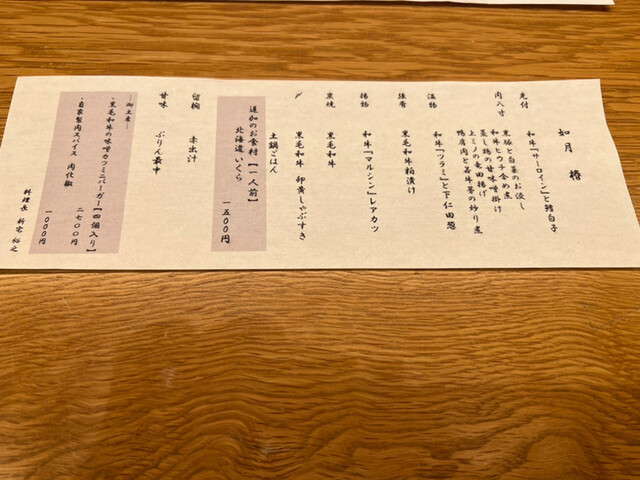 如月 椿
先付
和牛『サーロイン』と鱈白子
肉八寸
黒豚と白菜のお浸し
和牛ヒウチ含め煮
蒸し鶏の甘味噌掛け
上ミノの竜田揚げ
鴨肩肉と若牛蒡の炒り煮
温物
和牛『ツラミ』と下仁田葱
強肴
黒毛和牛粕漬け
揚物
和牛『マルシン』レアカツ
炭焼
黒毛和牛
〆
黒毛和牛 卵黄しゃぶすき
土鍋ごはん
追加のお食材【一人前】
北海道いくら
一五〇〇円
留椀
赤出汁
甘味
ぷりん最中
―御土産―
・黒毛和牛の味噌カツミニバーガー【四個入り】
二七〇〇円
・自家製肉スパイス 肉化椒
一〇〇〇円
料理長 新宅 裕之